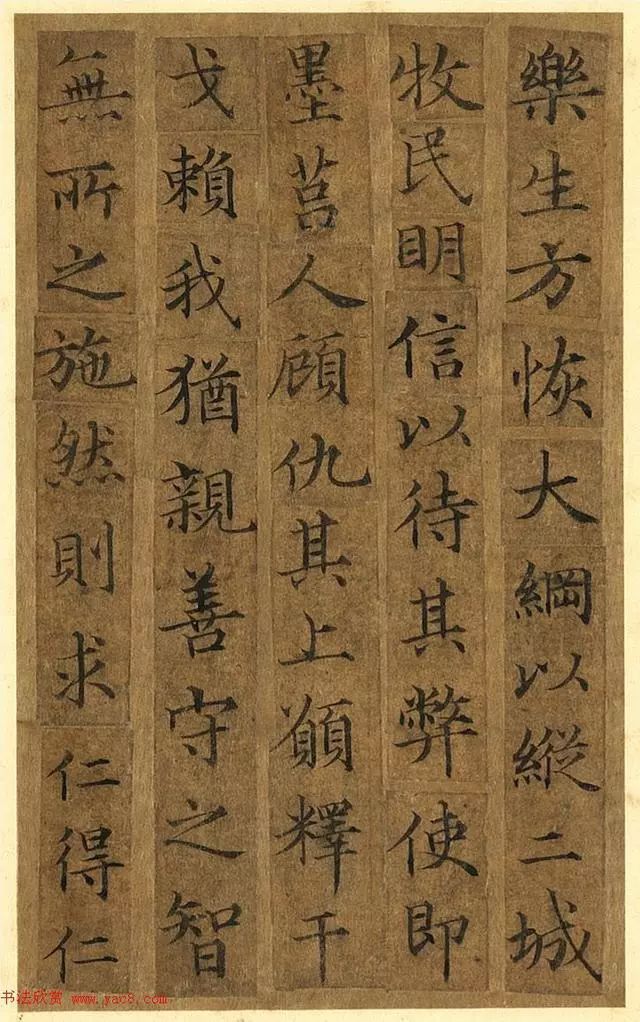 樂生方恢大綱以縱二城
牧民明信以待其弊使即
墨莒人顧仇其上願釋干
戈賴我猶親善守之智
無所之施然則求仁得仁
书法欣赏 www.yac8.com